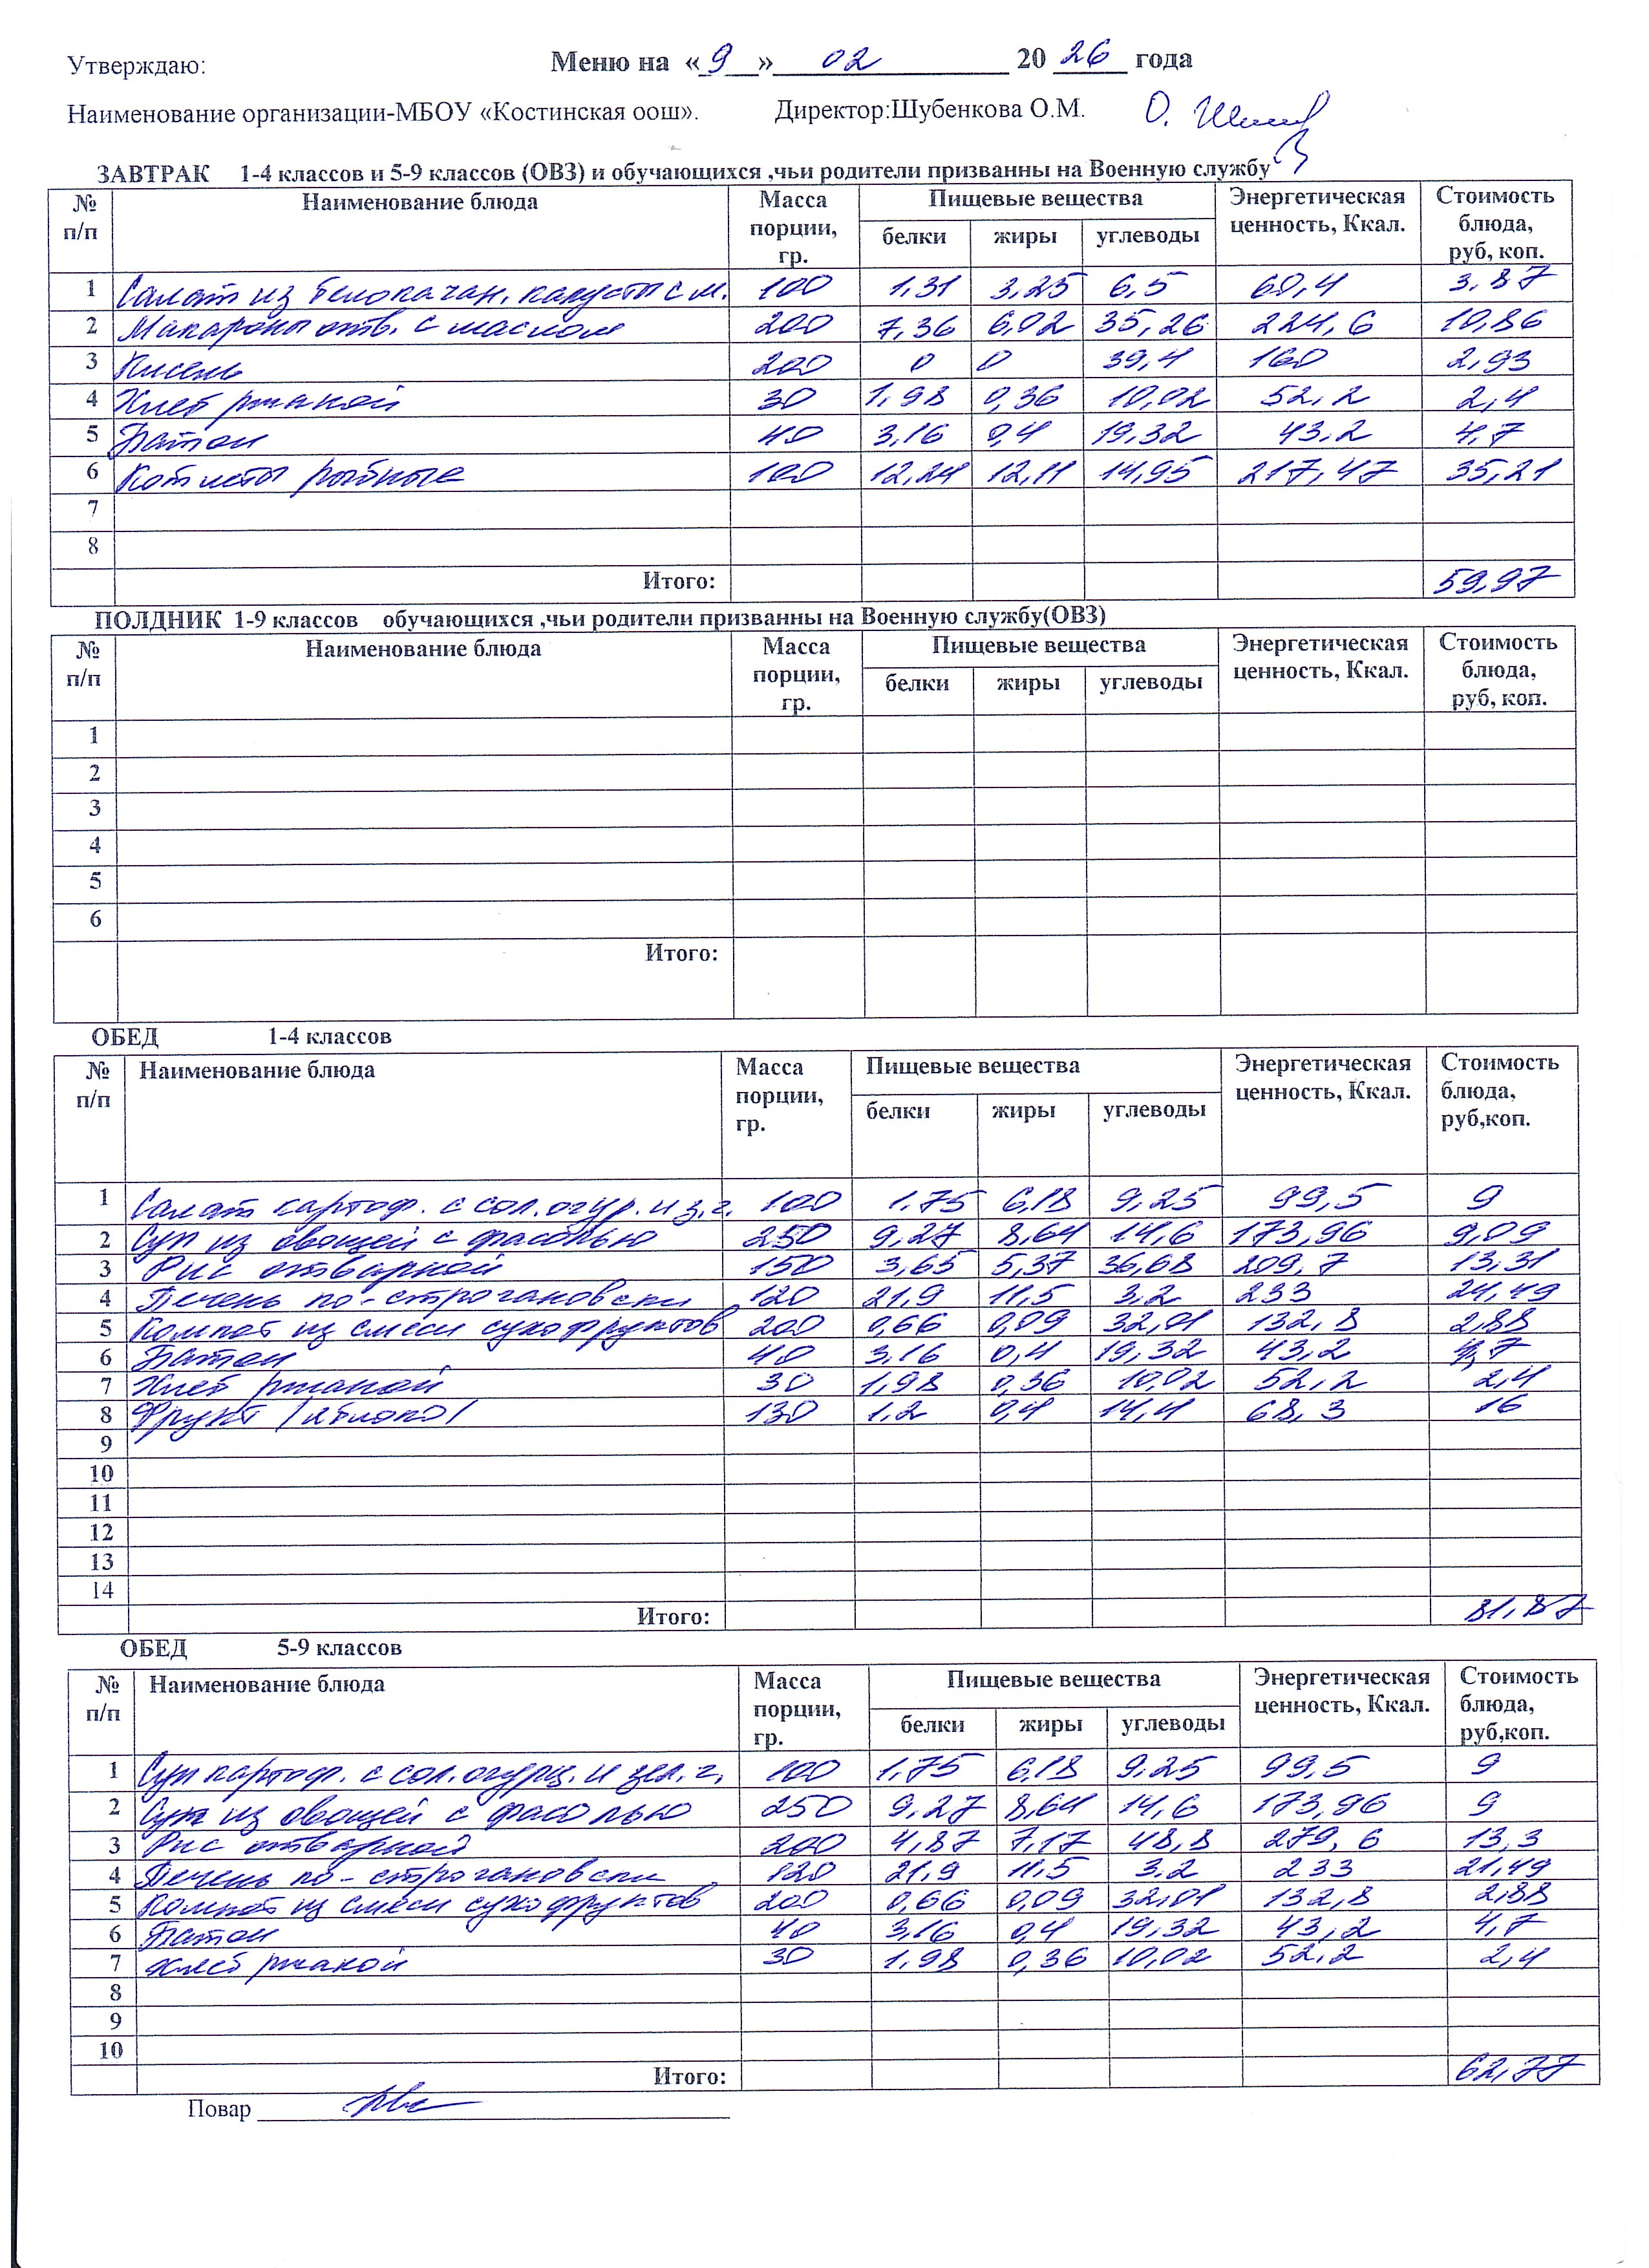 Утверждаю: Меню на «9» 02 2026 года
Наименование организации-МБОУ «Костинская оош». Директор:Шубенкова О.М.
ЗАВТРАК 1-4 классов и 5-9 классов (ОВЗ) и обучающихся ,чьи родители призванны на Военную службу
№ п/п Наименование блюда Масса порции, гр. Пищевые вещества Энергетическая ценность, Ккал. Стоимость блюда, руб, коп.
белки жиры углеводы
1 Салат из белокачан. капусты с м. 100 1,31 3,25 6,5 60,4 3,87
2 Макароны отв. с маслом 200 7,36 6,02 35,26 224,6 10,86
3 Кисель 200 0 0 39,4 160 2,93
4 Хлеб ржаной 30 1,98 0,36 10,02 52,2 2,4
5 Батон 40 3,16 0,4 19,32 43,2 4,7
6 Котлеты рыбные 100 12,24 12,11 14,95 217,47 35,21
7
8
Итого: 59,97
ПОЛДНИК 1-9 классов обучающихся ,чьи родители призванны на Военную службу(ОВЗ)
№ п/п Наименование блюда Масса порции, гр. Пищевые вещества Энергетическая ценность, Ккал. Стоимость блюда, руб, коп.
белки жиры углеводы
1
2
3
4
5
6
Итого:
ОБЕД 1-4 классов
№ п/п Наименование блюда Масса порции, гр. Пищевые вещества Энергетическая ценность, Ккал. Стоимость блюда, руб,коп.
белки жиры углеводы
1 Салат картоф. с сол.огур. и з.г. 100 1.75 6,18 9,25 99,5 9
2 Суп из овощей с фасолью 250 9,27 8,64 14,6 173,96 9,09
3 Рис отварной 150 3,65 5,37 36,68 209,7 13,31
4 Печень по-строгановски 120 21,9 11,5 3,2 233 24,49
5 Компот из смеси сухофруктов 200 0,66 0,09 32,01 132,8 2,88
6 Батон 40 3,16 0,4 19,32 43,2 4,7
7 Хлеб ржаной 30 1,98 0,36 10,02 52,2 2,4
8 Фрукт /яблоко/ 130 1,2 0,4 14,4 68,3 16
9
10
11
12
13
14
Итого: 81,87
ОБЕД 5-9 классов
№ п/п Наименование блюда Масса порции, гр. Пищевые вещества Энергетическая ценность, Ккал. Стоимость блюда, руб,коп.
белки жиры углеводы
1 Суп картоф. с сол.огурц. и зел.г. 100 1,75 6,18 9,25 99,5 9
2 Суп из овощей с фасолью 250 9,27 8,64 14,6 173,96 9
3 Рис отварной 200 4,87 7,17 48,8 279,6 13,3
4 Печень по-строгановски 120 21,9 11,5 3,2 233 21,49
5 Компот из смеси сухофруктов 200 0,66 0,09 32,01 132,8 2,88
6 Батон 40 3,16 0,4 19,32 43,2 4,7
7 хлеб ржаной 30 1,98 0,36 10,02 52,2 2,4
8
9
10
Итого: 62,77
Повар